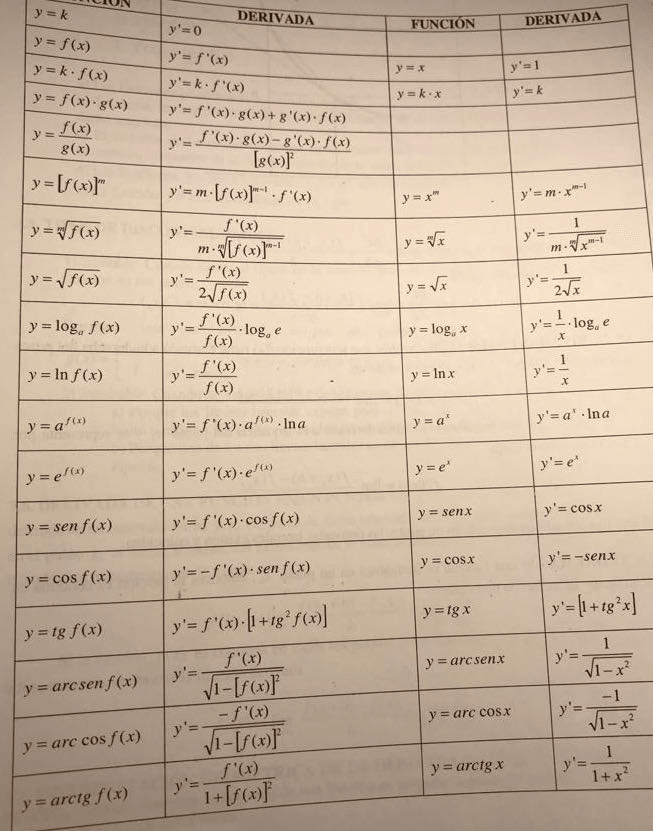 DERIVADA FUNCIÓN DERIVADA
y = k y'= 0
y = f(x) y'= f'(x) y = x y'= 1
y = k · f(x) y'= k · f'(x) y = k · x y'= k
y = f(x) · g(x) y'= f'(x) · g(x) + g'(x) · f(x)
y = f(x)/g(x) y'= (f'(x) · g(x) − g'(x) · f(x))/[g(x)]²
y = [f(x)]ᵐ y'= m · [f(x)]ᵐ⁻¹ · f'(x) y = xᵐ y'= m · xᵐ⁻¹
y = ᵐ√f(x) y'= f'(x)/(m · ᵐ√[f(x)]ᵐ⁻¹) y = ᵐ√x y'= 1/(m · ᵐ√xᵐ⁻¹)
y = √f(x) y'= f'(x)/(2√f(x)) y = √x y'= 1/(2√x)
y = logₐ f(x) y'= f'(x)/f(x) · logₐ e y = logₐ x y'= 1/x · logₐ e
y = ln f(x) y'= f'(x)/f(x) y = ln x y'= 1/x
y = a^f(x) y'= f'(x) · a^f(x) · ln a y = aˣ y'= aˣ · ln a
y = e^f(x) y'= f'(x) · e^f(x) y = eˣ y'= eˣ
y = sen f(x) y'= f'(x) · cos f(x) y = senx y'= cosx
y = cos f(x) y'= −f'(x) · sen f(x) y = cosx y'= −senx
y = tg f(x) y'= f'(x) · [1 + tg² f(x)] y = tg x y'= [1 + tg² x]
y = arcsen f(x) y'= f'(x)/√(1−[f(x)]²) y = arcsenx y'= 1/√(1−x²)
y = arc cos f(x) y'= −f'(x)/√(1−[f(x)]²) y = arc cosx y'= −1/√(1−x²)
y = arctg f(x) y'= f'(x)/(1+[f(x)]²) y = arctg x y'= 1/(1+x²)